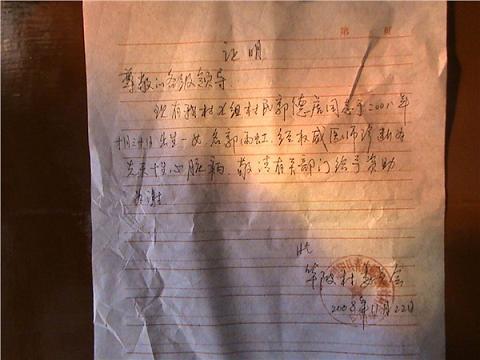 第 页
证明
尊敬的各级领导
现有我村 组村民郭德 同志于2001年
十月三十日出生一女名郭雨虹.经权威医师诊断为
先天性心脏病.敬请有关部门给予资助
为谢
此
村委会
2008年11月22日